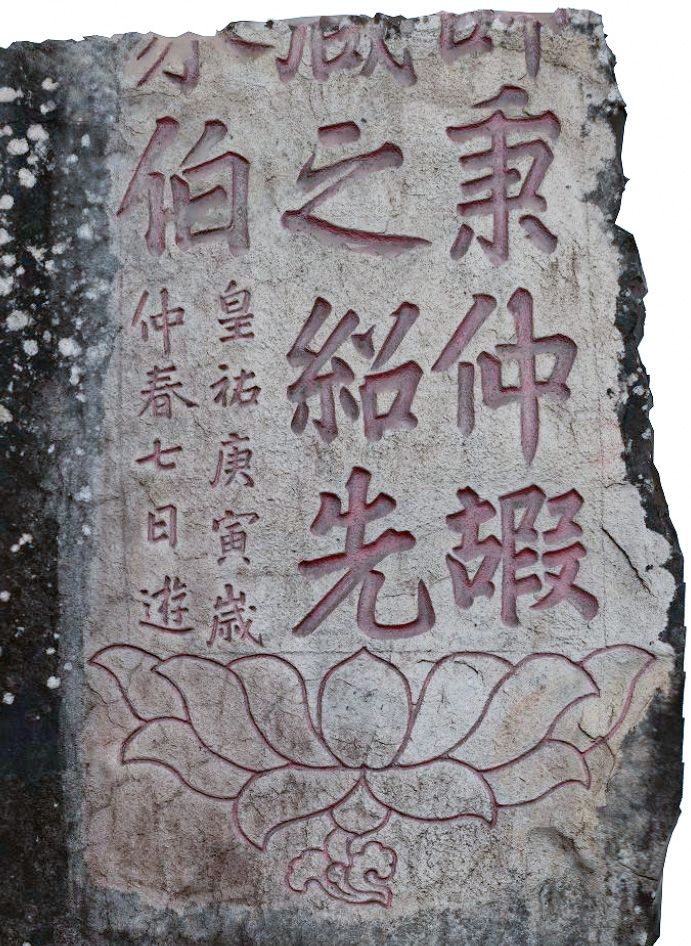 秉仲嘏
之紹先
伯
皇祐庚寅嵗
仲春七日遊